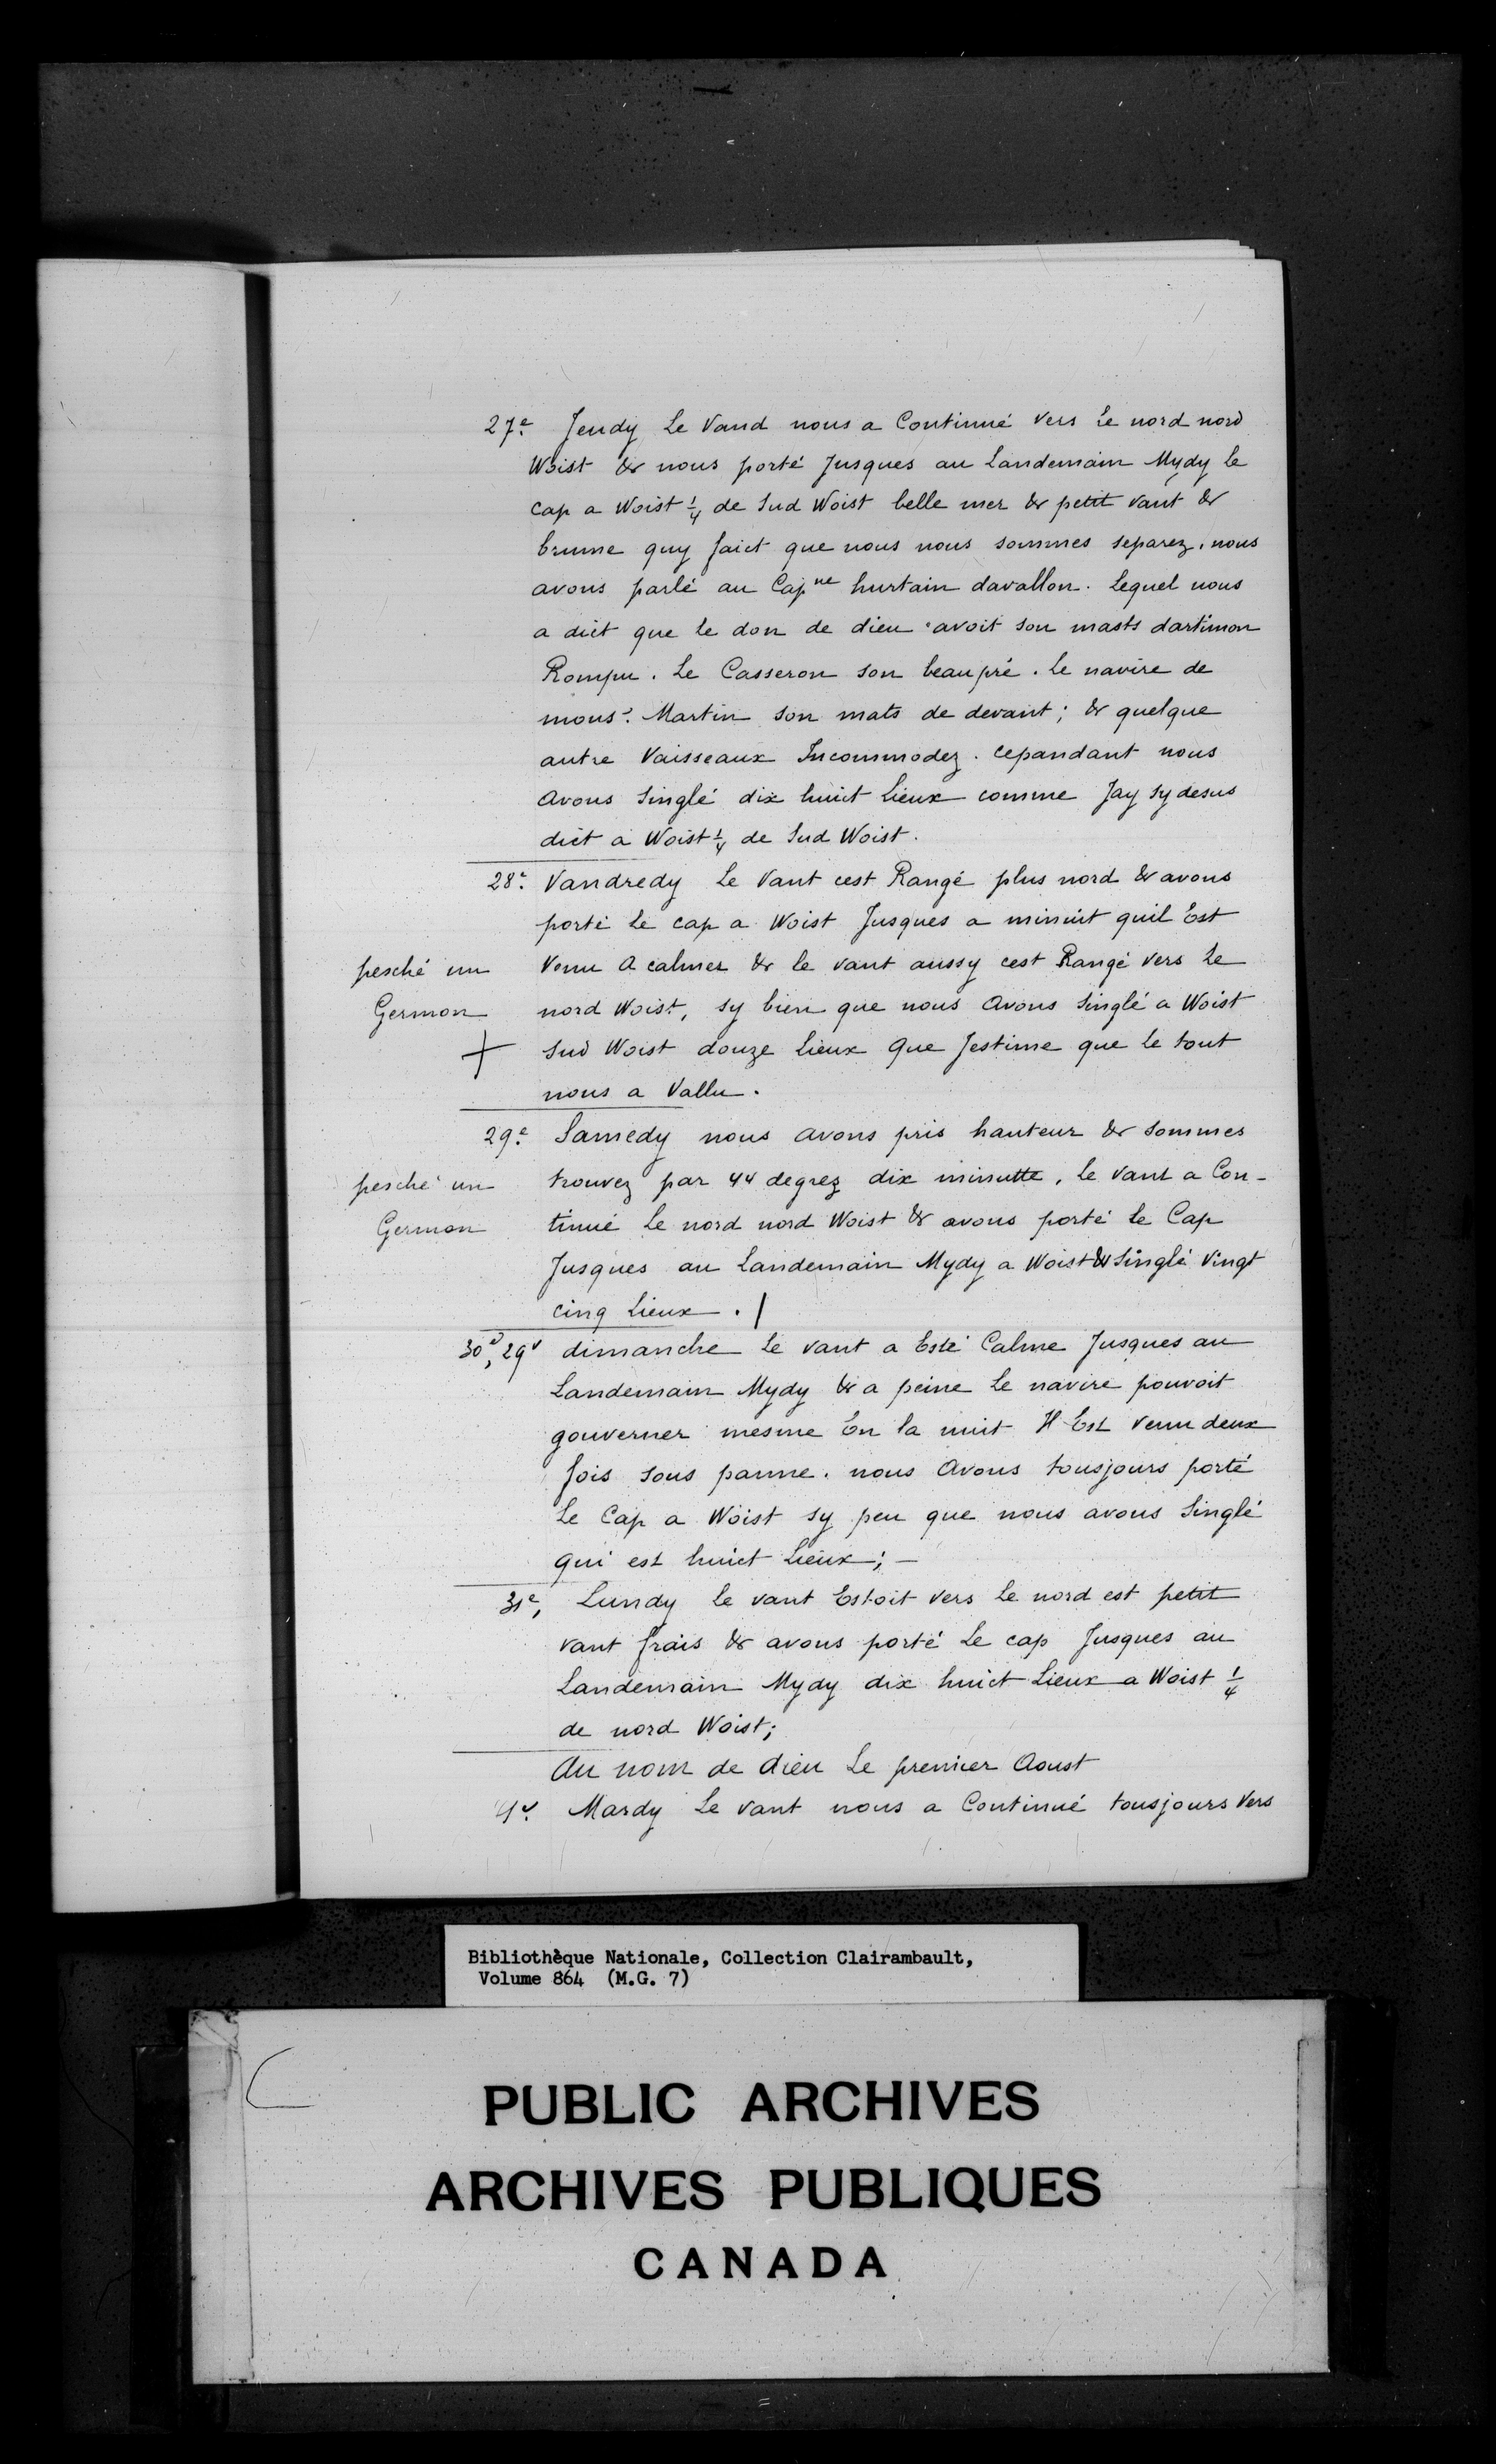 27e. Jeudy Le Vand nous a Continué vers Le nord nord
Woist & nous porté Jusques au Landemain Mydy le
cap a Woist 1/4 de Sud Woist belle mer & petit vant &
brume quy faict que nous nous sommes separez, nous
avons parlé au Capne hurtain davallon. Lequel nous
a dict que le don de dieu avoit son masts dartimon
Rompu. Le Casseron son beaupré. Le navire de
monsr. Martin son mats de devant; & quelque
autre Vaisseaux Incommodez. cepandant nous
avons Singlé dix huict Lieux comme Jay sy desus
dict a Woist 1/4 de Sud Woist.
28e. Vandredy Le Vant cest Rangé plus nord & avons
porté Le cap a Woist Jusques a minuit quil Est
pesché un
Germon
+
Venu A calmer & le vant aussy cest Rangé vers Le
nord Woist, sy bien que nous Avons Singlé a Woist
Sud Woist douze Lieux Que Jestime que le tout
nous a Vallu.
29e. Samedy nous avons pris hauteur & sommes
pesché un
Germon
trouvez par 44 degrez dix minutte, Le Vant a Con-
tinué Le nord nord Woist & avons porté Le Cap
Jusques au Landemain Mydy a Woist & Singlé Vingt
cinq Lieux. /
30e, 29e dimanche Le vant a Esté Calme Jusques au
Landemain Mydy & a peine Le navire pouvoit
gouverner mesme En la nuit Il Est Venu deux
fois sous panne. nous Avons tousjours porté
Le Cap a Woist sy peu que nous avons Singlé
qui est huict Lieux; —
31e, Lundy le vant Estoit vers Le nord est petit
vant frais & avons porté Le cap Jusques au
Landemain Mydy dix huict Lieux a Woist 1/4
de nord Woist;
Au nom de dieu Le premier Aoust
Mardy Le vant nous a Continué tousjours Vers
Bibliothèque Nationale, Collection Clairambault,
Volume 864 (M.G. 7)
PUBLIC ARCHIVES
ARCHIVES PUBLIQUES
CANADA